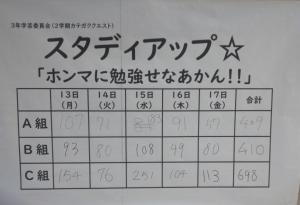 3年学芸委員会(2学期カテガククエスト)
スタディアップ☆
「ホンマに勉強せなあかん!!」
13日(月) 14日(火) 15日(水) 16日(木) 17日(金) 合計
A組 107 71 83 91 57 409
B組 93 80 108 49 80 410
C組 154 76 251 104 113 698